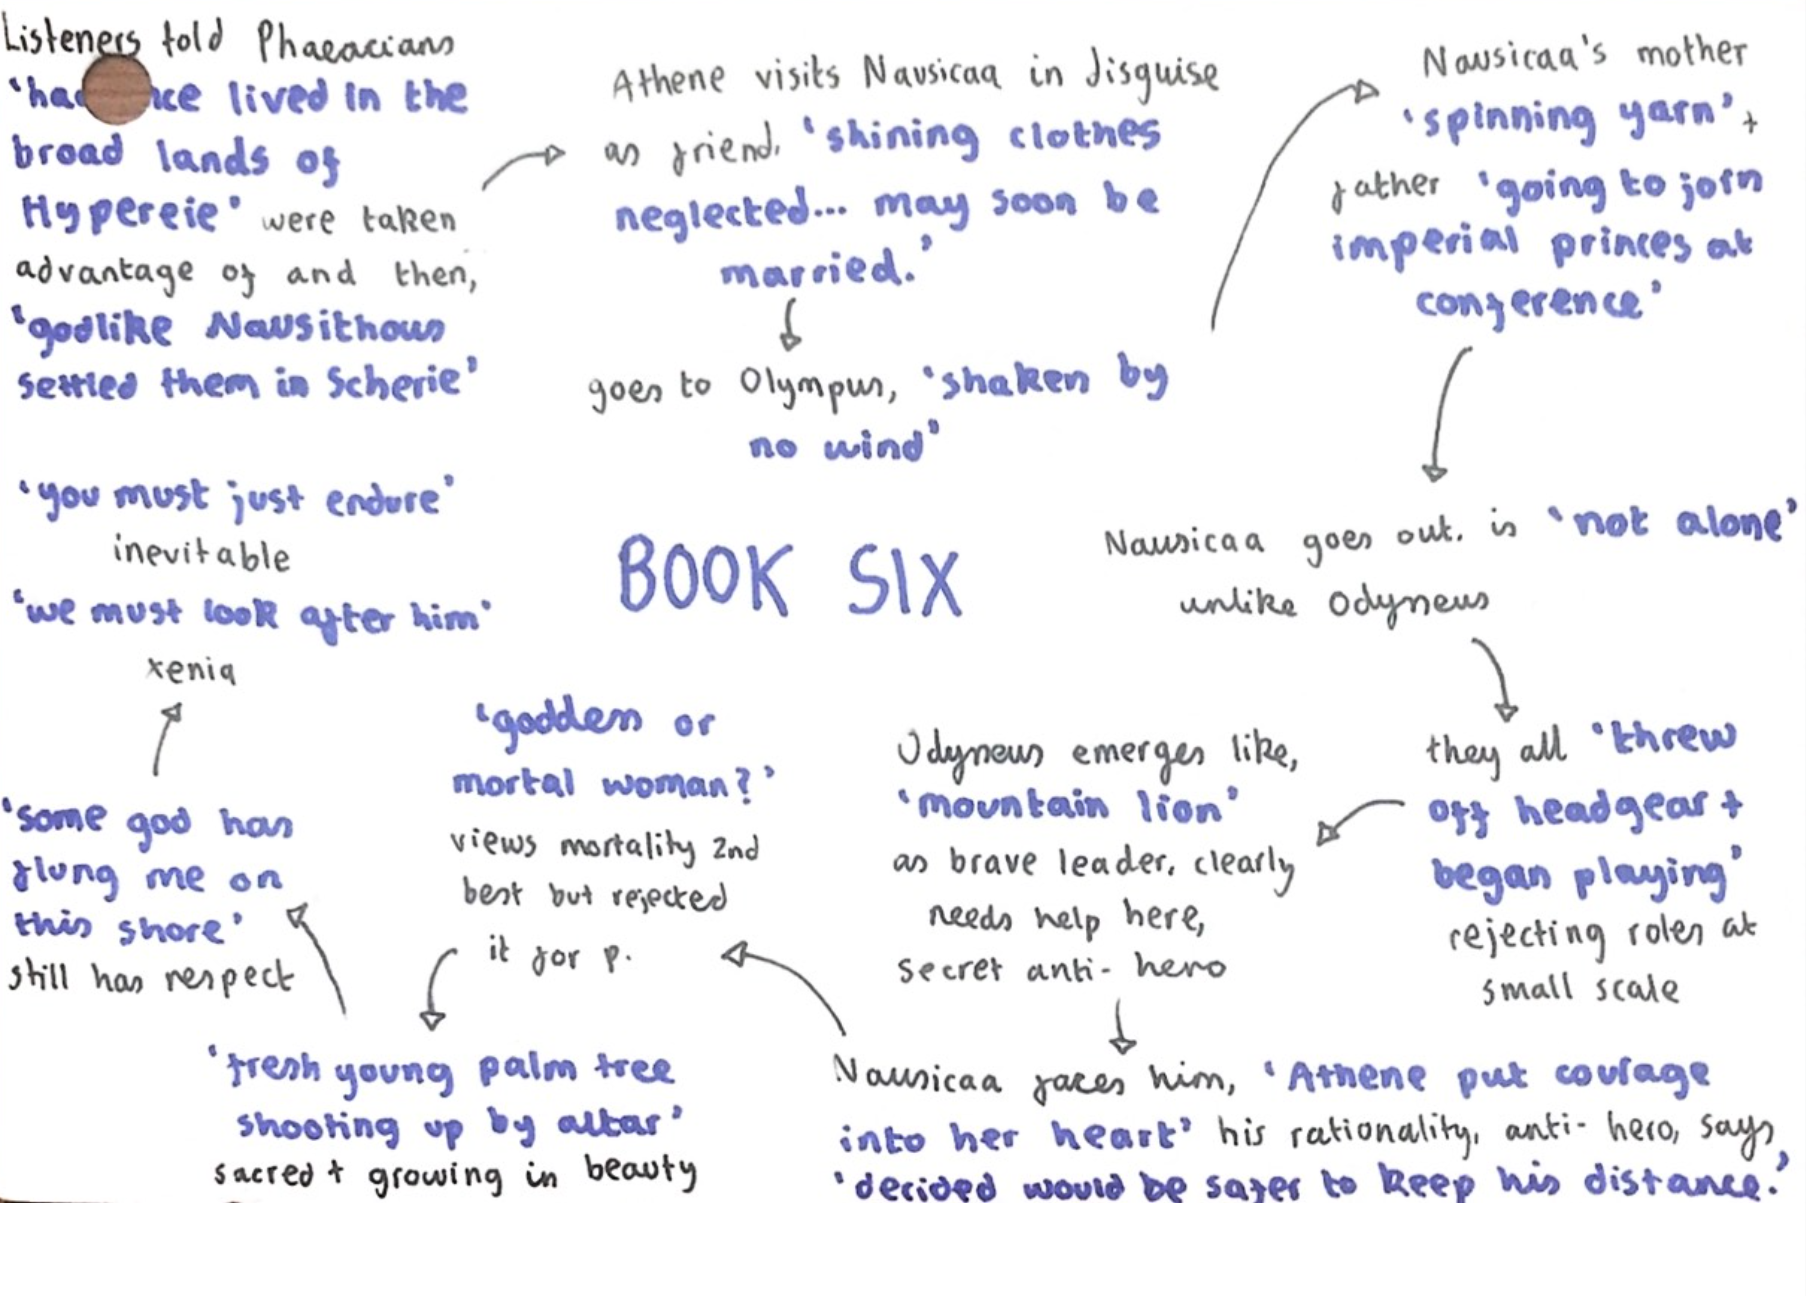 Listeners told Phaeacians
'had lived in the
broad lands of
Hypereie' were taken
advantage of and then,
'godlike Nausithous
settled them in Scherie'
Athene visits Nausicaa in disguise
as friend. 'shining clothes
neglected... may soon be
married.'
goes to Olympus, 'shaken by
no wind'
Nausicaa's mother
'spinning yarn' +
father 'going to join
imperial princes at
conference'
Nausicaa goes out. is 'not alone'
unlike Odysseus
they all 'threw
off headgear +
began playing'
rejecting roles at
small scale
Odysseus emerges like,
'mountain lion'
as brave leader, clearly
needs help here,
secret anti-hero
Nausicaa faces him, 'Athene put courage
into her heart' his rationality, anti-hero, says
'decided would be safer to keep his distance.'
'goddess or
mortal woman?'
views mortality 2nd
best but rejected
it for p.
'fresh young palm tree
shooting up by altar'
sacred + growing in beauty
'some god has
flung me on
this shore'
still has respect
'you must just endure'
inevitable
'we must look after him'
xenia
BOOK SIX